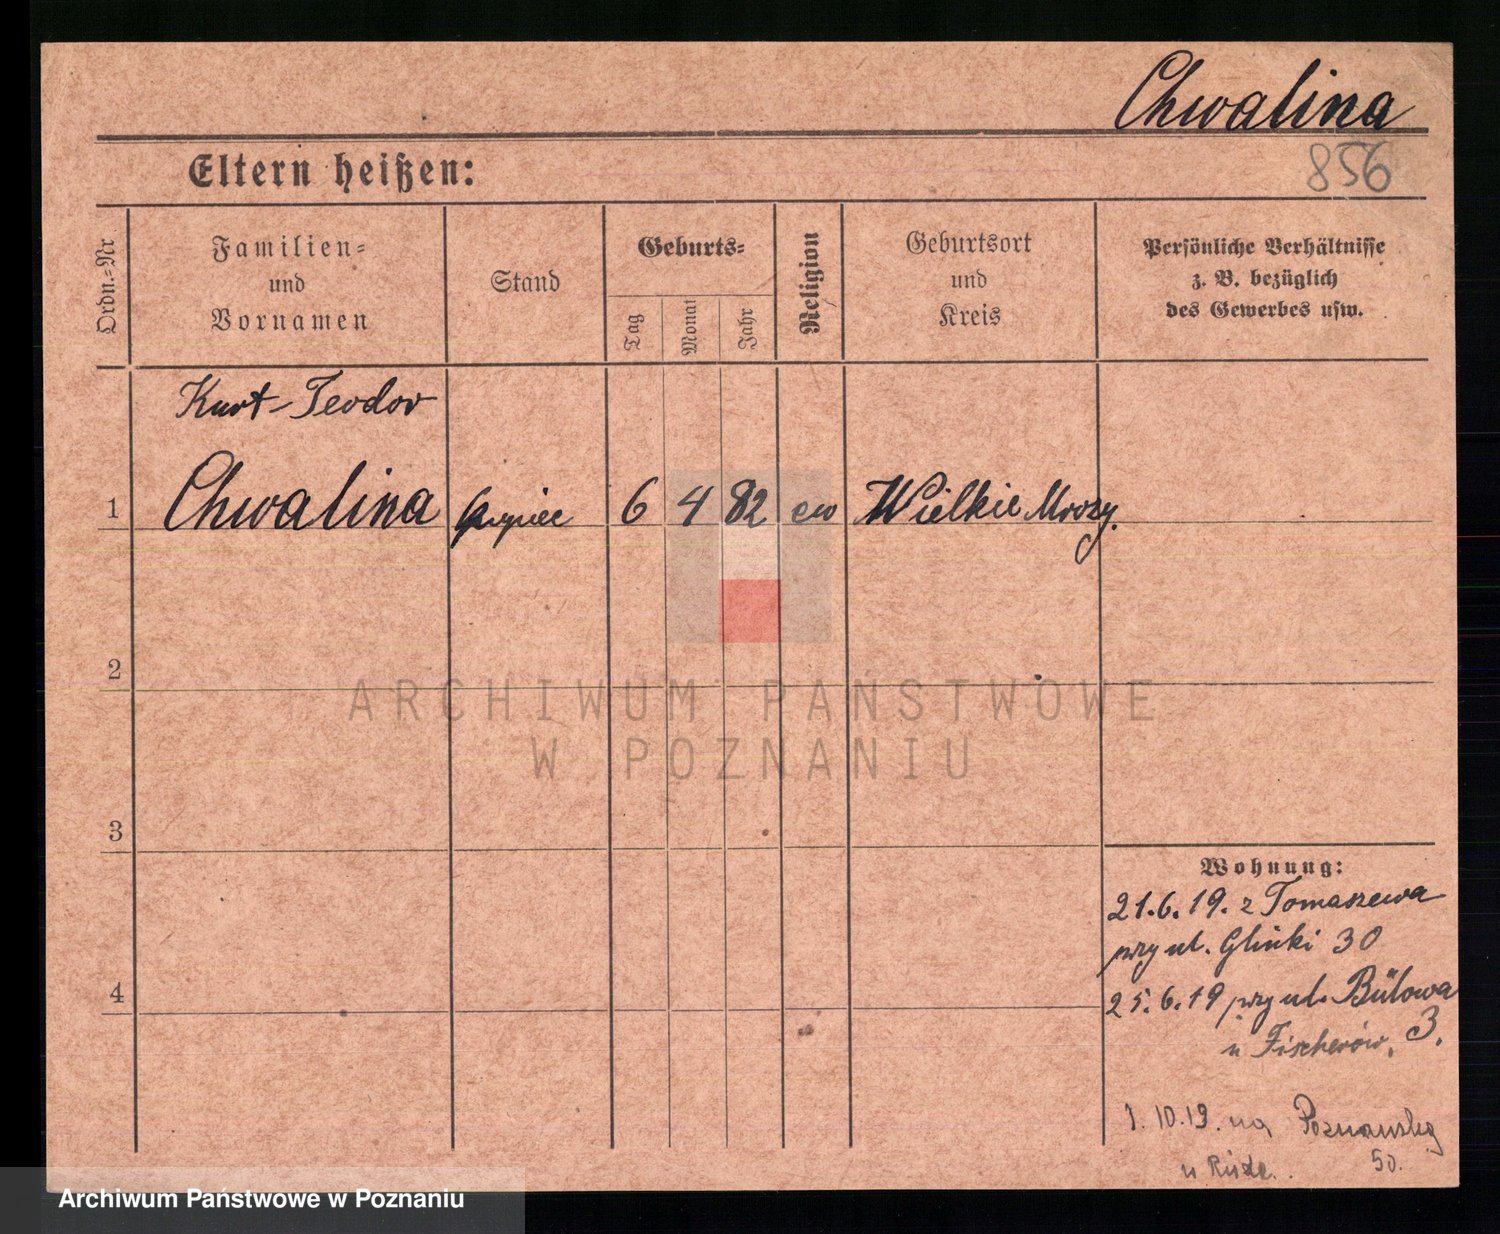 Chwalina
Eltern heißen:
856
Ordn.=Nr
Familien=
und
Vornamen
Stand
Geburts=
Tag
Monat
Jahr
Religion
Geburtsort
und
Kreis
Persönliche Verhältnisse
z. B. bezüglich
des Gewerbes usw.
Kurt-Teodor
1 Chwalina kupiec 6 4 82 ew Wielkie Mrozy.
2
ARCHIWUM PAŃSTWOWE
W POZNANIU
3
Wohnung:
21.6.19. z Tomaszewa
przy ul. Glinki 30
4
25.6.19 przy ul. Bülowa
u Fischerów, 3.
1.10.19. na Poznańską
u 50.
Archiwum Państwowe w Poznaniu